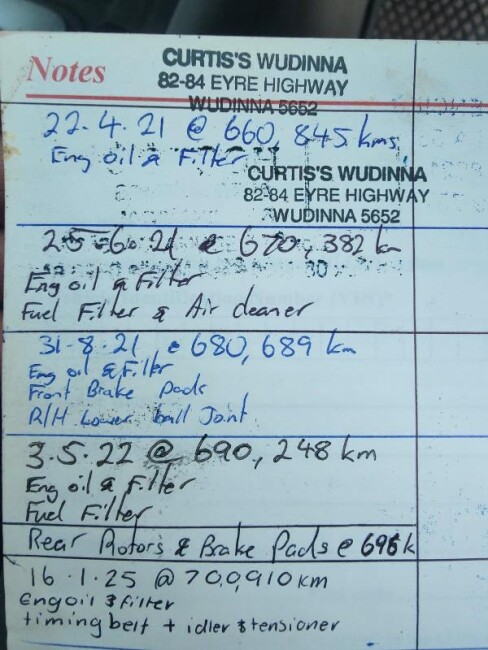 Notes
CURTIS'S WUDINNA
82-84 EYRE HIGHWAY
WUDINNA 5652
22.4.21 @ 660,845 kms
Eng oil & Filter
CURTIS'S WUDINNA
82-84 EYRE HIGHWAY
WUDINNA 5652
25-6.21 @ 670,382 km
Eng oil & Filter
Fuel Filter & Air cleaner
31-8.21 @ 680,689 km
Eng oil & Filter
Front Brake Pads
R/H Lower ball Joint
3.5.22 @ 690,248 km
Eng oil & Filter
Fuel Filter
Rear Rotors & Brake Pads @ 696k
16.1.25 @ 700,910 km
Eng oil & filter
timing belt + idler & tensioner